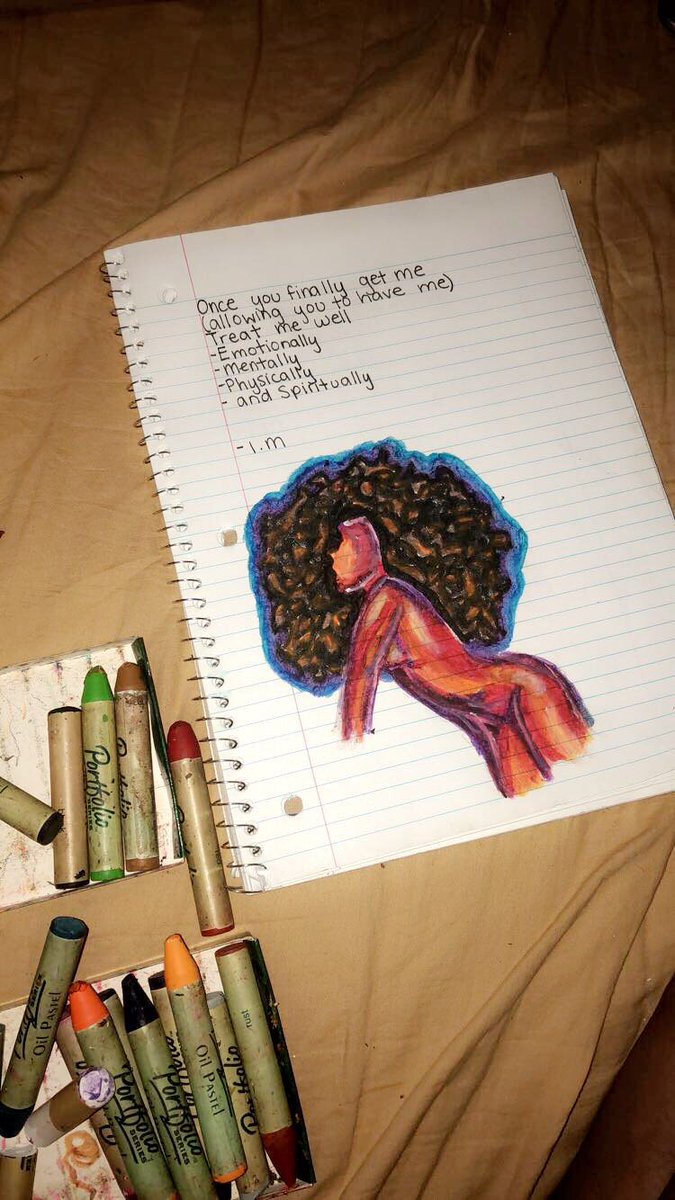 Once you finally get me
(allowing you to have me)
Treat me well
-Emotionally
-mentally
-Physically
- and Spiritually
-I.M
Portfolio
SERIES
Portfolio
OIL PASTEL
Portfolio
SERIES
Portfolio
SERIES
OIL PASTEL
Portfolio
RUST